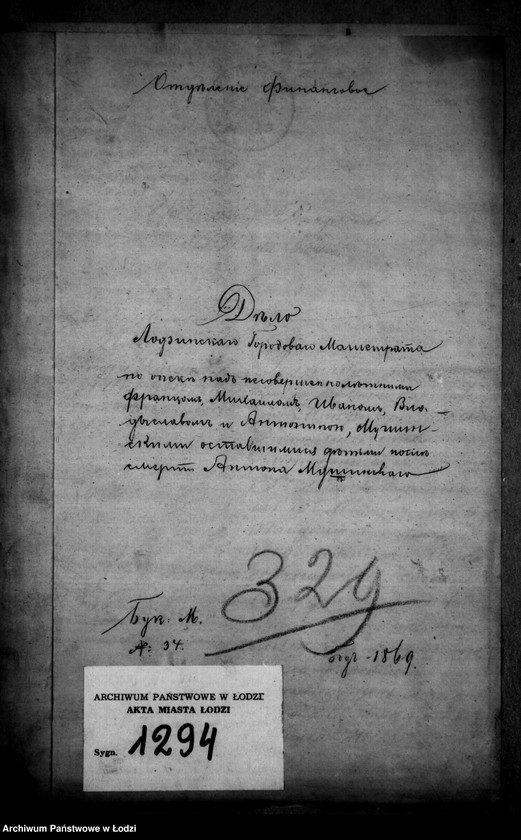 Отдѣленіе Финансовое
Дѣло
Лодзинскаго Городоваго Магистрата
по опеки надъ несовершеннолѣтними
Францомъ, Михаиломъ, Иваномъ, Вла-
дыславомъ и Антониною, Мушин-
скими оставшимися дѣтьми послѣ
смерти Антона Мушинскаго
329
Бук: М.
№: 34.
1869.
ARCHIWUM PAŃSTWOWE W ŁODZI
AKTA MIASTA ŁODZI
Sygn. 1294
Archiwum Państwowe w Łodzi